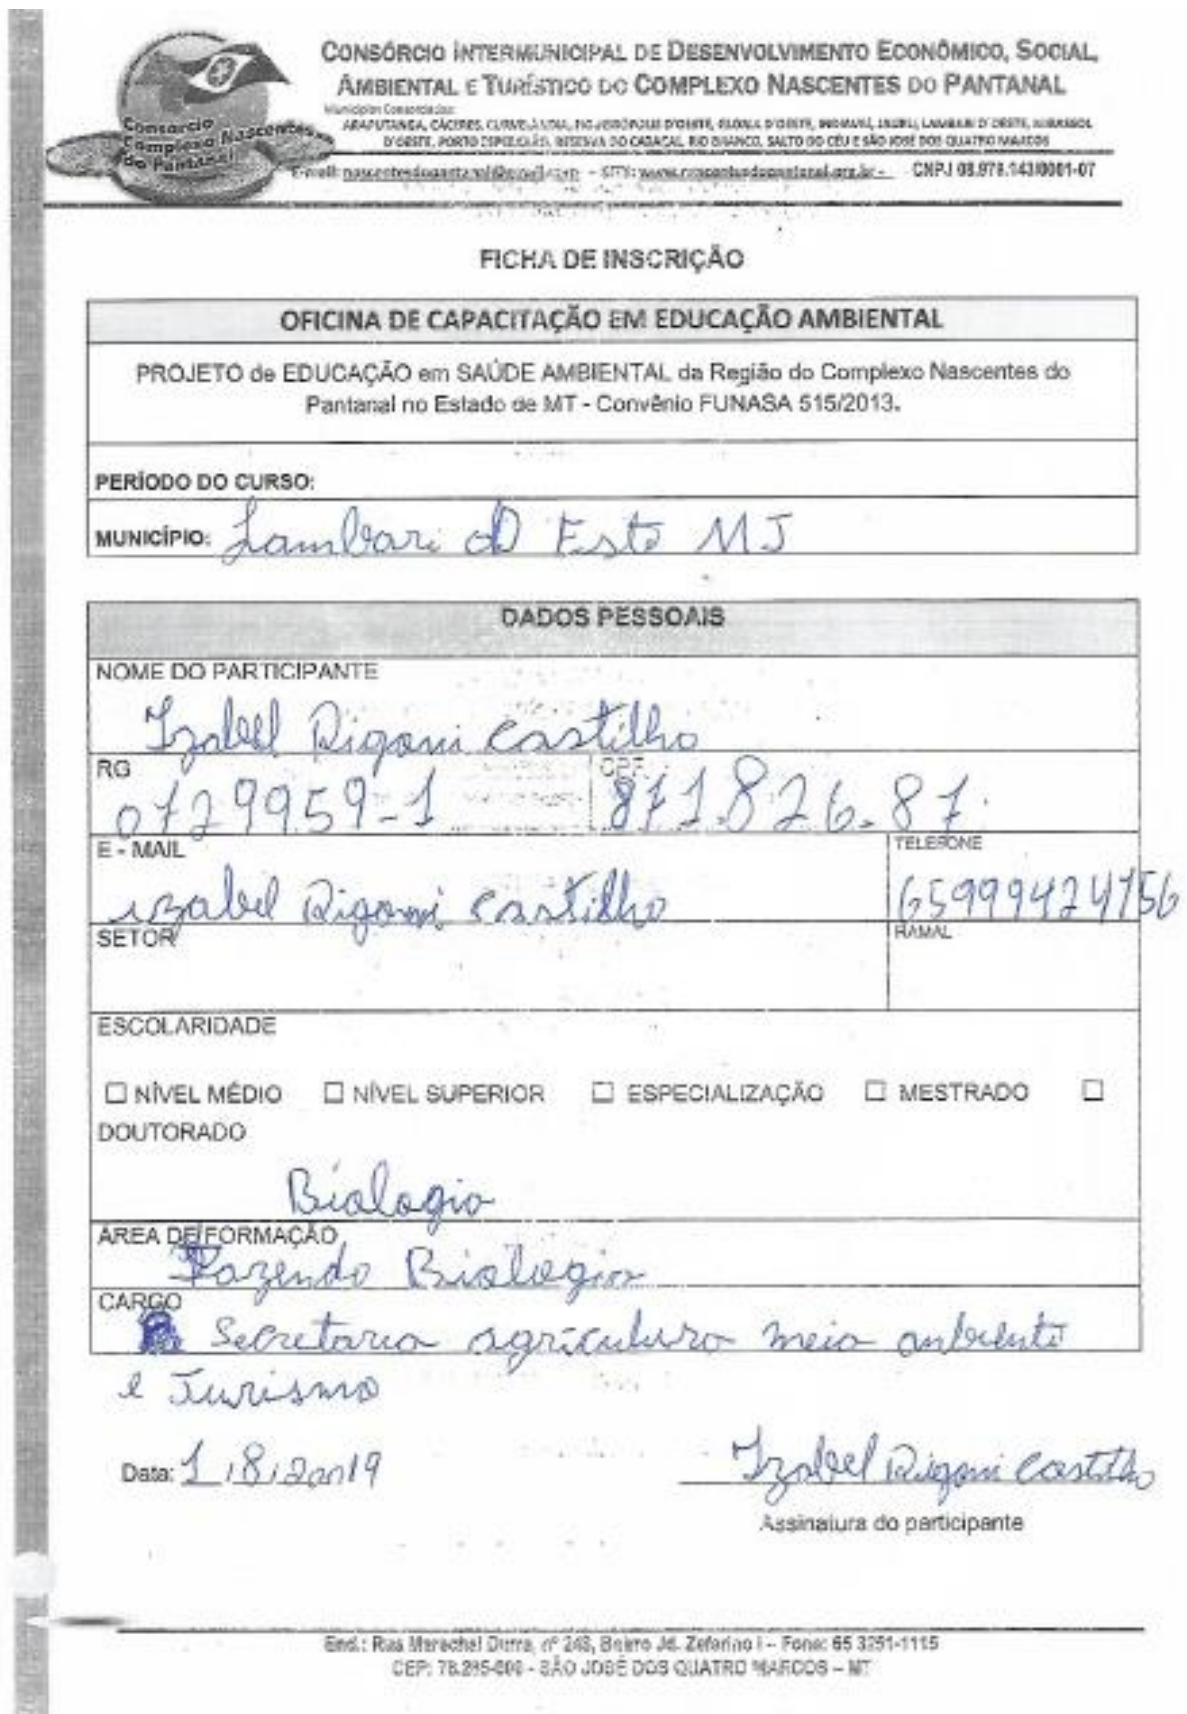 CONSÓRCIO INTERMUNICIPAL DE DESENVOLVIMENTO ECONÔMICO, SOCIAL,
AMBIENTAL E TURÍSTICO DO COMPLEXO NASCENTES DO PANTANAL
Consorcio
Complexo Nascentes
do Pantanal
Municípios Consorciados:
ARAPUTANGA, CÁCERES, CURVELÂNDIA, FIGUEIRÓPOLIS D'OESTE, GLÓRIA D'OESTE, INDIAVAÍ, JAURU, LAMBARI D'OESTE, MIRASSOL
D'OESTE, PORTO ESPERIDIÃO, RESERVA DO CABAÇAL, RIO BRANCO, SALTO DO CÉU E SÃO JOSÉ DOS QUATRO MARCOS
E-mail: nascentesdopantanal@gmail.com - SITE: www.nascentesdopantanal.org.br - CNPJ 08.978.143/0001-07
FICHA DE INSCRIÇÃO
OFICINA DE CAPACITAÇÃO EM EDUCAÇÃO AMBIENTAL
PROJETO de EDUCAÇÃO em SAÚDE AMBIENTAL da Região do Complexo Nascentes do
Pantanal no Estado de MT - Convênio FUNASA 515/2013.
PERÍODO DO CURSO:
MUNICÍPIO: Lambari dO Este MT
DADOS PESSOAIS
NOME DO PARTICIPANTE
Izabel Rigoni Castilho
RG CPF
0729959-1 871.826.87.
E - MAIL TELEFONE
izabel Rigoni Castilho 65999424156
SETOR RAMAL
ESCOLARIDADE
☐ NÍVEL MÉDIO ☐ NÍVEL SUPERIOR ☐ ESPECIALIZAÇÃO ☐ MESTRADO ☐
DOUTORADO
Biologia
ÁREA DE FORMAÇÃO
Fazendo Biologia
CARGO
Secretaria agricultura meio anbiente
e Turismo
Data: 1/8/2019 Izabel Rigoni Castilho
Assinatura do participante
End.: Rua Marechal Dutra, nº 248, Bairro Jd. Zeferino I – Fone: 65 3251-1115
CEP: 78.285-000 - SÃO JOSÉ DOS QUATRO MARCOS – MT